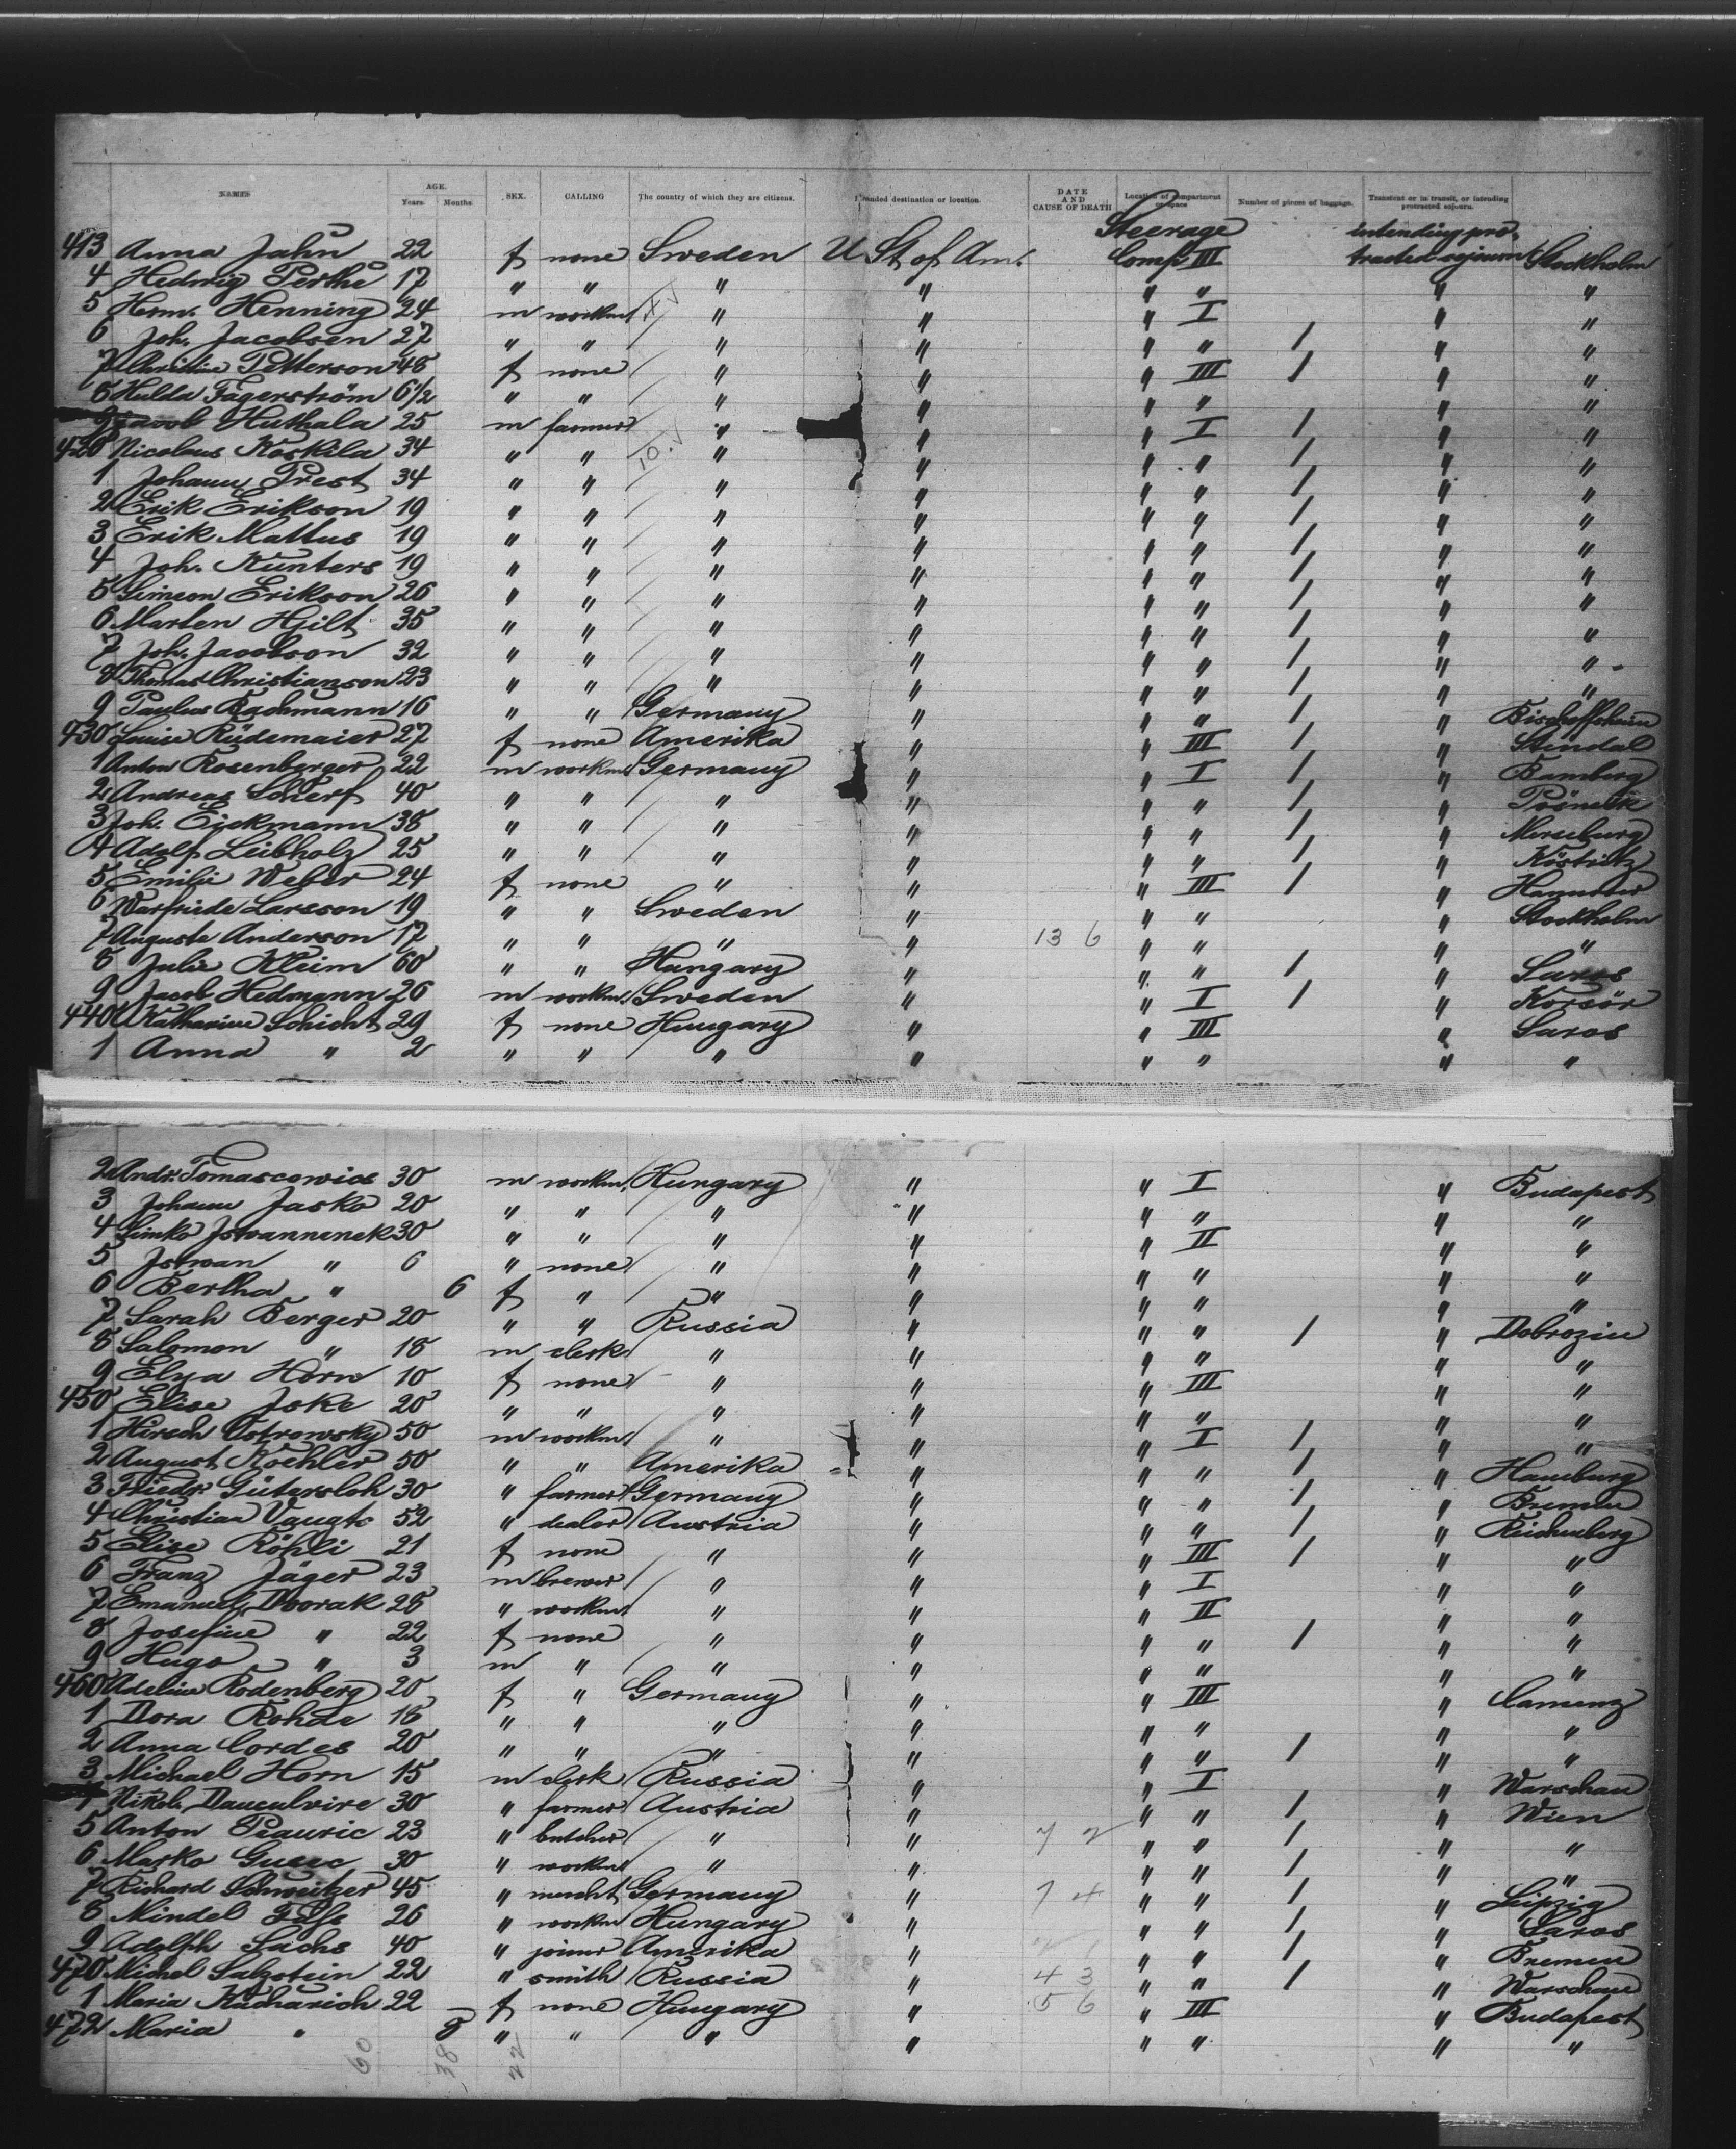 NAMES AGE. Years. Months. SEX. CALLING The country of which they are citizens. Intended destination or location. DATE AND CAUSE OF DEATH Location of compartment or space Number of pieces of baggage. Transient or in transit, or intending protracted sojourn.
Steerage intending pro-
413 Anna Jahn 22 f none Sweden U St of Am. Comp III tracted sojourn Stockholm
4 Hedwig Perthe 17 " " " " " " " "
5 Herm. Henning 24 m workm " " " I " "
6 Joh. Jacobsen 27 " " " " " " / " "
7 Christine Petterson 48 f none " " " III / " "
8 Hulda Fagerström 6 1/2 " " " " " " " "
9 Jacob Huthala 25 m farmer " " " I / " "
420 Nicolaus Koskila 34 " " " " " " / " "
1 Johann Prest 34 " " " " " " / " "
2 Erik Erikson 19 " " " " " " / " "
3 Erik Mattus 19 " " " " " " / " "
4 Joh. Kunters 19 " " " " " " / " "
5 Simeon Erikson 26 " " " " " " / " "
6 Marten Hjilt 35 " " " " " " / " "
7 Joh. Jacobson 32 " " " " " " / " "
8 Thomas Christianson 23 " " " " " " / " "
9 Paulus Bachmann 16 " " Germany " " " / " Bischoffsheim
430 Louise Rüdemaier 27 f none Amerika " " III / " Stendal
1 Anton Rosenberger 22 m workm Germany " " I / " Bamberg
2 Andreas Scherf 40 " " " " " " / " Pösneck
3 Joh. Eickmann 38 " " " " " " / " Merseburg
4 Adolf Leibholz 25 " " " " " " / " Köstritz
5 Emilie Weber 24 f none " " " III / " Hannover
6 Warfriede Larsson 19 " " Sweden " " " " Stockholm
7 Auguste Anderson 17 " " " " 13 6 " " " "
8 Julie Kleim 60 " " Hungary " " " / " Saros
9 Jacob Hedmann 26 m workm. Sweden " " I / " Korsör
440 Katharine Schicht 29 f none Hungary " " III " Saros
1 Anna " 2 " " " " " " " "
2 Andr. Tomascowics 30 m workm. Hungary " " I " Budapest
3 Johann Jasko 20 " " " " " " " "
4 Simko Jstvannenek 30 " " " " " II " "
5 Jstvan " 6 " none " " " " " "
6 Bertha " 6 f " " " " " " "
7 Sarah Berger 20 " " Russia " " " / " Dobrozin
8 Salomon " 18 m clerk " " " " " "
9 Elya Horn 10 f none " " " III " "
450 Elise Joke 20 " " " " " " " "
1 Hirsch Ostrowsky 50 m workm " " " I / " "
2 August Koehler 50 " " Amerika " " " / " Hamburg
3 Friedr. Gütersloh 30 " farmer Germany " " " / " Bremen
4 Christian Vaugto 52 " dealer Austria " " " / " Reichenberg
5 Elise Röhli 21 f none " " " III / " "
6 Franz Jäger 23 m brewer " " " I " "
7 Emanuel Dvorak 28 " workm " " " II " "
8 Josefine " 22 f none " " " " / " "
9 Hugo " 3 m " " " " " " "
460 Adeline Rodenberg 20 f " Germany " " III " Camenz
1 Dora Rohde 18 " " " " " " " "
2 Anna Cordes 20 " " " " " " / " "
3 Michael Horn 15 m clerk Russia " " I " Warschau
4 Nikol. 30 " farmer Austria " " " / " Wien
5 Anton 23 " butcher " " 7 2 " " / " "
6 Marko 30 " workm " " " " / " "
7 Richard Schweitzer 45 " mercht Germany " 7 4 " " / " Leipzig
8 Mindel 26 " workm Hungary " " " / " Saros
9 Adolph Sachs 40 " joiner Amerika " " " / " Bremen
470 Michel Salzstein 22 " smith Russia " 4 3 " " / " Warschau
1 Maria Kucharich 22 f none Hungary " 5 6 " III " Budapest
472 Maria " 8 " " " " " " " "
60 38 22